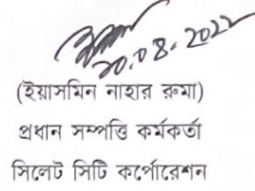 20.08.2022
(ইয়াসমিন নাহার রুমা)
প্রধান সম্পত্তি কর্মকর্তা
সিলেট সিটি কর্পোরেশন